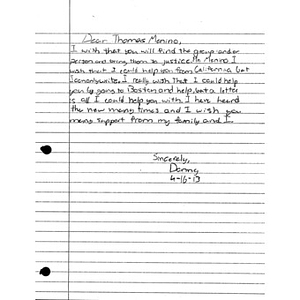 Dear Thomas Menino,
I wish that you will find the group and or
person and bring them to justice. Mr. Menino I
wish that I could help you from California but
I can only write. I really wish that I could help
you by going to Boston and help, but a letter
is all I could help you with. I have heard
the new many times and I wish you
many support from my family and I.
Sincerely,
Danny
4-16-13